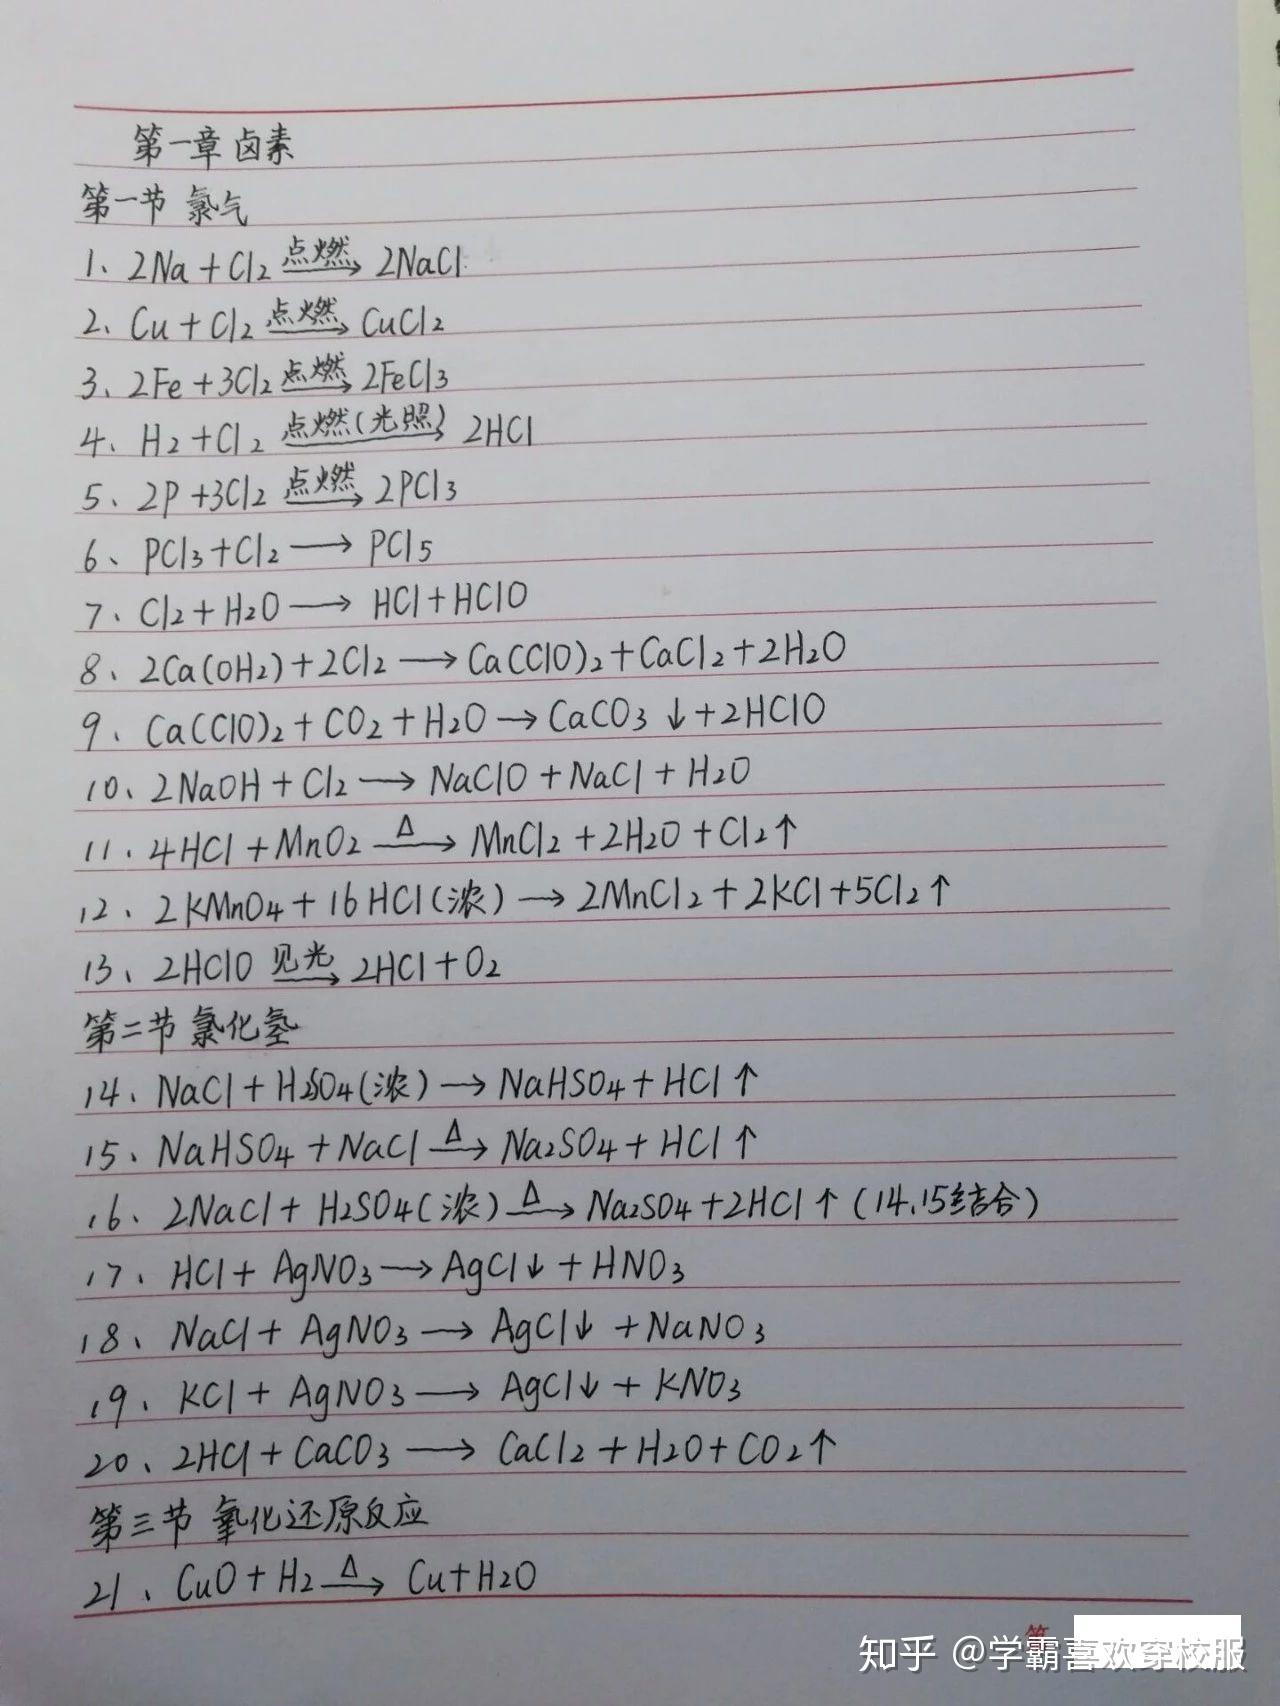 第一章 卤素
第一节 氯气
1、2Na + Cl2 点燃→ 2NaCl
2、Cu + Cl2 点燃→ CuCl2
3、2Fe + 3Cl2 点燃→ 2FeCl3
4、H2 + Cl2 点燃(光照)→ 2HCl
5、2P + 3Cl2 点燃→ 2PCl3
6、PCl3 + Cl2 → PCl5
7、Cl2 + H2O → HCl + HClO
8、2Ca(OH2) + 2Cl2 → Ca(ClO)2 + CaCl2 + 2H2O
9、Ca(ClO)2 + CO2 + H2O → CaCO3↓ + 2HClO
10、2NaOH + Cl2 → NaClO + NaCl + H2O
11、4HCl + MnO2 Δ→ MnCl2 + 2H2O + Cl2↑
12、2KMnO4 + 16HCl(浓) → 2MnCl2 + 2KCl + 5Cl2↑
13、2HClO 见光→ 2HCl + O2
第二节 氯化氢
14、NaCl + H2SO4(浓) → NaHSO4 + HCl↑
15、NaHSO4 + NaCl Δ→ Na2SO4 + HCl↑
16、2NaCl + H2SO4(浓) Δ→ Na2SO4 + 2HCl↑ (14、15结合)
17、HCl + AgNO3 → AgCl↓ + HNO3
18、NaCl + AgNO3 → AgCl↓ + NaNO3
19、KCl + AgNO3 → AgCl↓ + KNO3
20、2HCl + CaCO3 → CaCl2 + H2O + CO2↑
第三节 氧化还原反应
21、CuO + H2 Δ→ Cu + H2O
第
知乎 @学霸喜欢穿校服